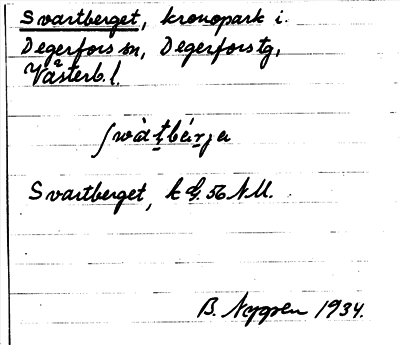 Svartberget, kronopark i.
Degerfors sn, Degerfors tg,
Västerb. l.
Svartberget, k G. 56 N M.
B. Nygren 1934.